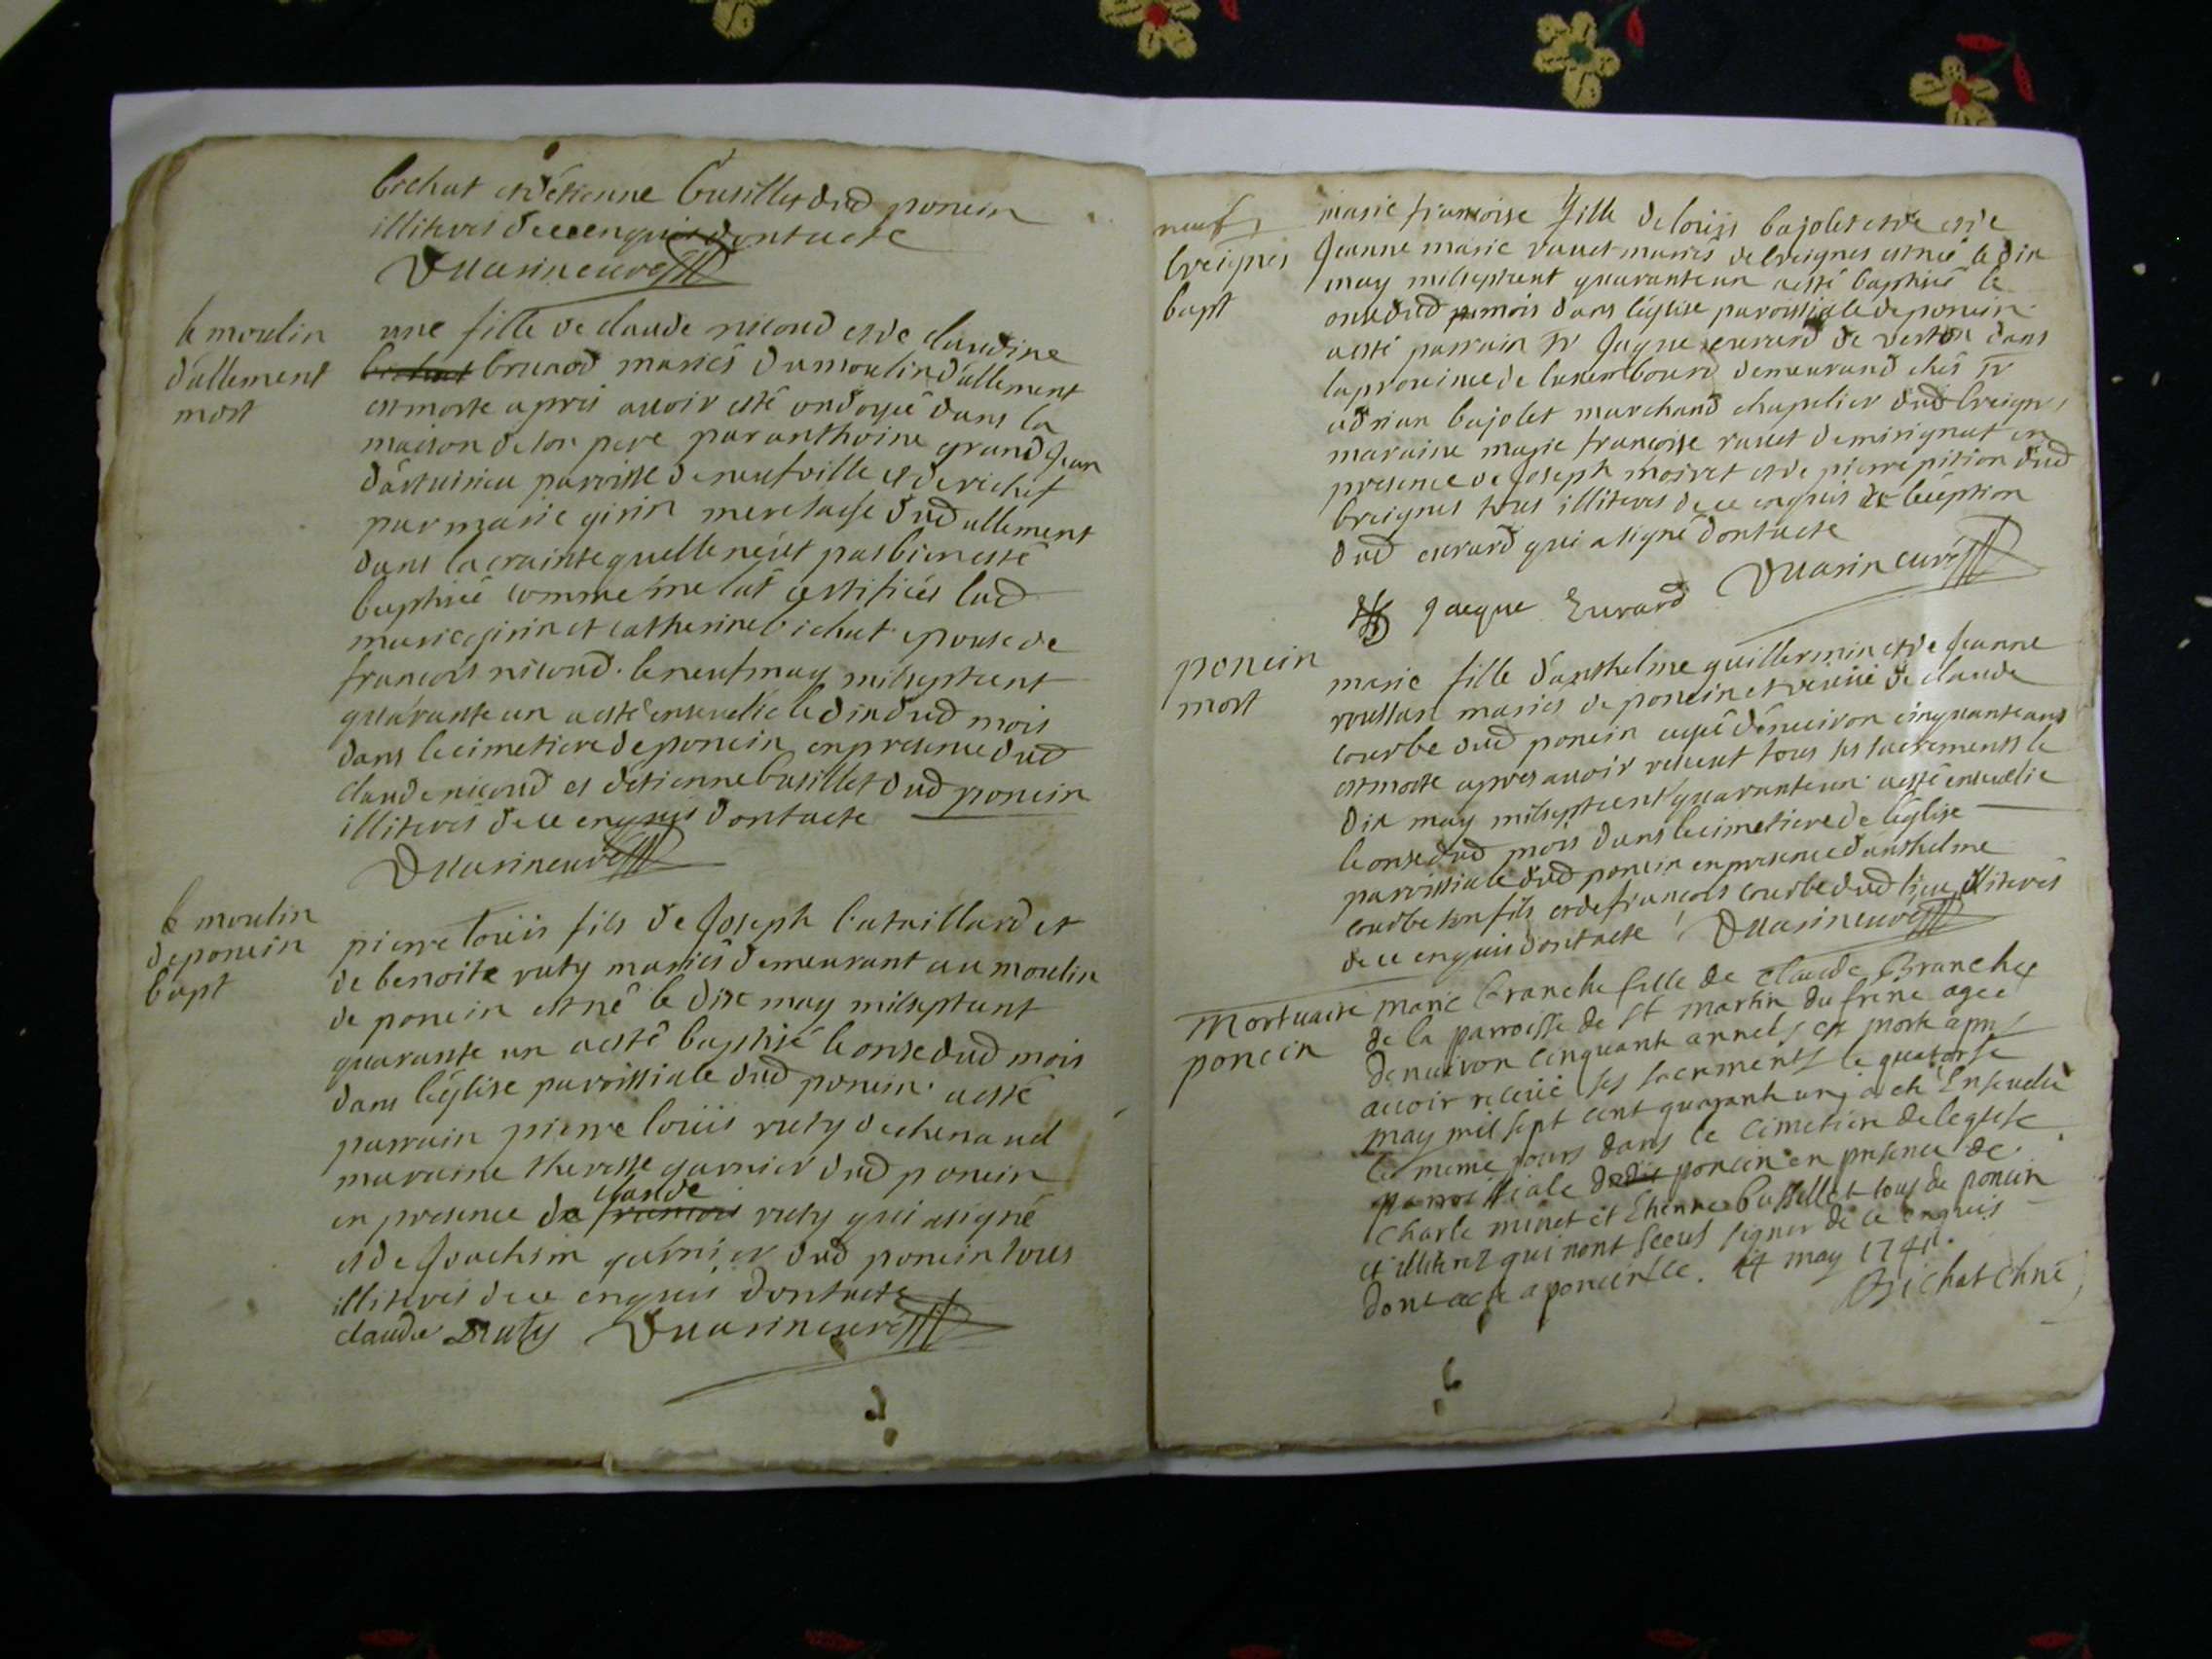 bichat et d'étienne busillet dud poncin
illiterés de ce enquis dont acte
D Marin curé
le moulin
d'allement
mort
une fille de claude nicoud et de claudine
bichat brunod mariés du moulin d'allement
est morte apres avoir esté ondoyée dans la
maison de son pere par anthoine grand Jean
paroisse de neufville et derichef
par marie girin mere sage dud allement
dans la crainte quelle n'eut pas bien esté
baptisée comme me l'at certifiés lad
marie girin et catherine bichat epouse de
francois nicoud. le neuf may milseptcent
quarante un a esté ensevelie le dix dud mois
dans le cimetiere de poncin en presence dud
claude nicoud et d'étienne busillet dud poncin
illiterés de ce enquis dont acte
D Marin curé
le moulin
de poncin
bapt
pierre loüis fils de Joseph bataillard et
de benoite ruty mariés demeurant au moulin
de poncin est né le dix may milseptcent
quarante un a esté baptisé le onze dud mois
dans l'église paroissiale dud poncin. a esté
parrain pierre loüis ruty de chenavel
maraine theresse garnier dud poncin
claude
en presence de francois ruty qui a signé
et de Joachim garnier dud poncin tous
illiterés de ce enquis dont acte
claude Ruty D Marin curé
neuf
breignes
bapt
marie francoise fille de loüis bajolet et de
Jeanne marie ravet mariés de breignes est née le dix
may milseptcent quarante un a esté baptisée le
onze dud mois dans l'église paroissiale de poncin
a esté parrain sr Jaque evrard de verton dans
la province de luxembourd demeurand chés sr
adrian bajolet marchand chapelier dud breignes
maraine marie francoise ravet de merignat en
presence de Joseph moiret et de pierre pition dud
breignes tous illiterés de ce enquis à l'éception
dud evrard qui a signé dont acte
Jacque Evrard D Marin curé
poncin
mort
marie fille d'anthelme guillermin et de Jeanne
roussan mariés de poncin et veuve de claude
courbe dud poncin agée d'enuiron cinquante ans
est morte apres avoir receut tous ses sacrements le
dix may milseptcent quarante un a esté ensevelie
le onze dud mois dans le cimetiere de l'église
paroissiale dud poncin en presence d'anthelme
courbe son fils et de francois courbe dud lieu illiterés
de ce enquis dont acte D Marin curé
Mortuaire
poncin
Marie branche fille de Claude Branche
de la parroisse de st martin du frene agee
denuiron cinquante annees est morte apres
avoir receüe ses sacrements le quatorse
may mil sept cent quarante un, a eté Ensevelie
le meme jours dans le cimetiere de leglise
parroissiale dudit poncin en presence de
Charle minet et Etienne bussillet tous de poncin
et illiterez qui nont sceus signer de ce enquis
dont acte a poncin ce. 14 may 1741.
Bichat